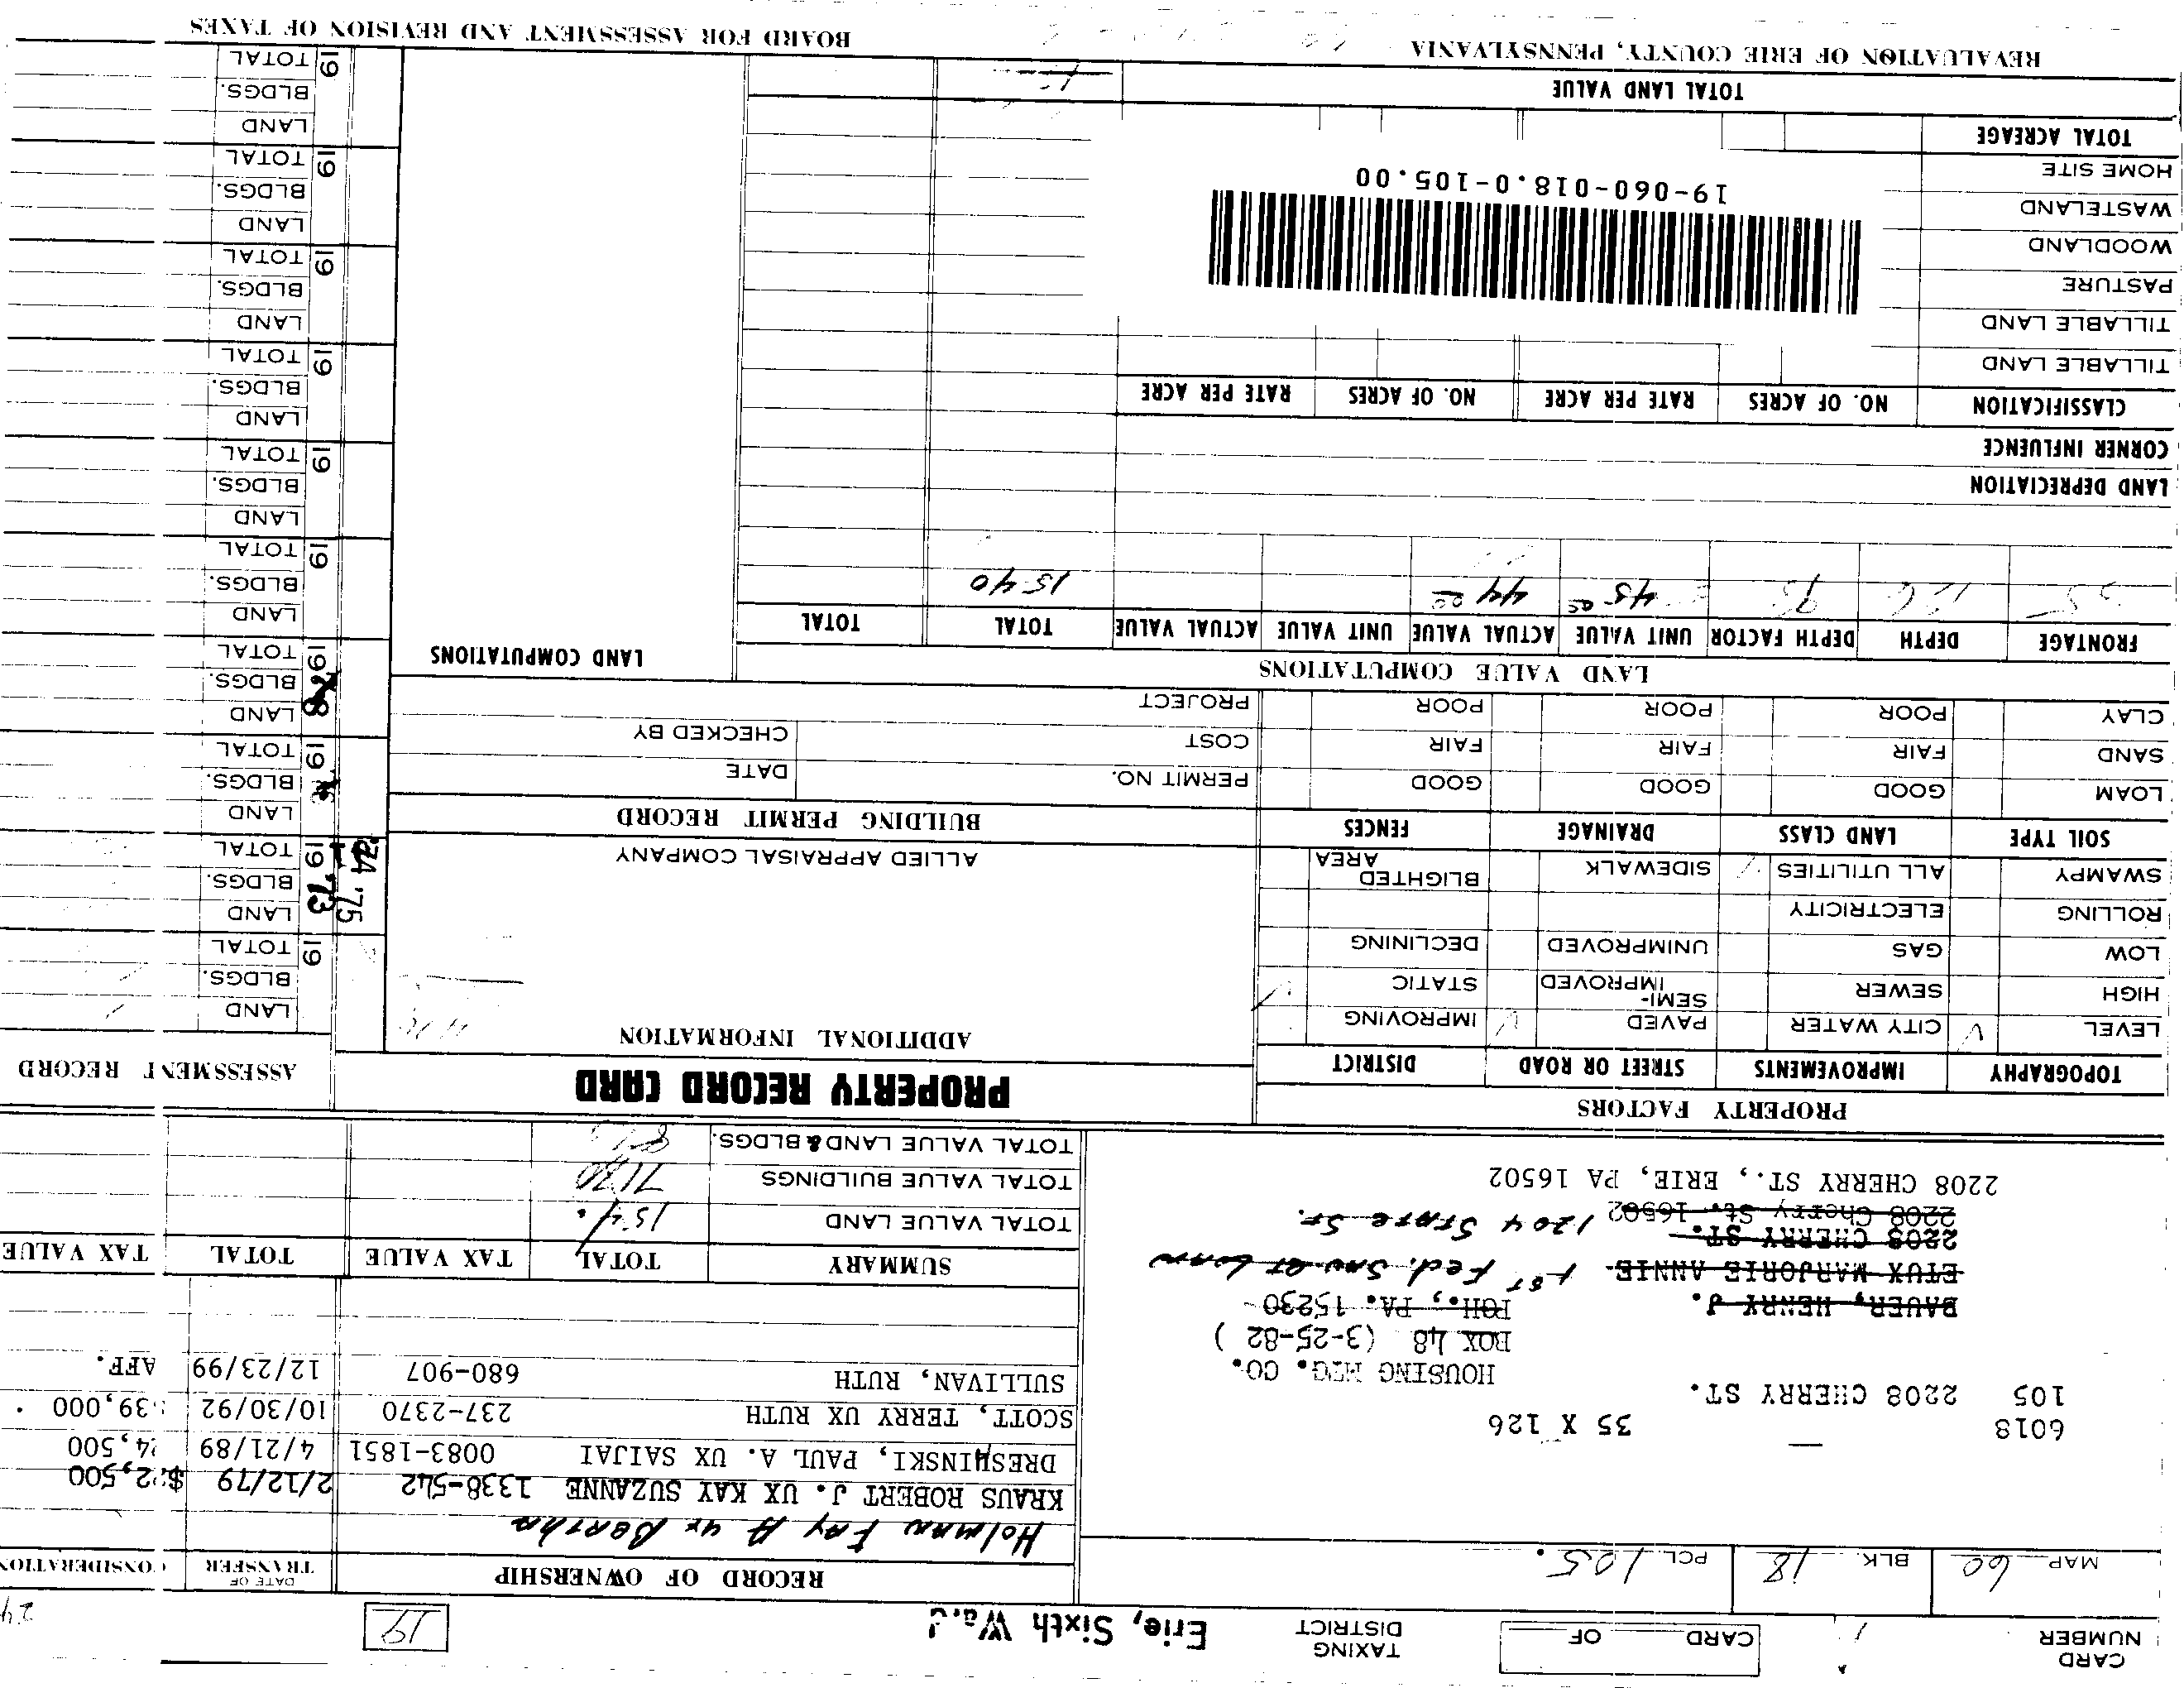 CARD NUMBER 1 CARD OF TAXING DISTRICT Erie, Sixth Ward 19
MAP 60 BLK. 18 PCL. 105.
6018 — 35 X 126
105 2208 CHERRY ST.
HOUSING MTG. CO.
BOX 48 (3-25-82)
PGH., PA. 15230
BAUER, HENRY J.
ETUX MARJORIE ANNIE 1st Fed. Sav & Loan
2208 CHERRY ST.
2208 Cherry St. 16502 1204 State St.
2208 CHERRY ST., ERIE, PA 16502
RECORD OF OWNERSHIP DATE OF TRANSFER CONSIDERATION
Holman Fay A ux Bertha
KRAUS ROBERT J. UX KAY SUZANNE 1338-542 2/12/79 $22,500
DRESHINSKI, PAUL A. UX SAIJAI 0083-1851 4/21/89 24,500
SCOTT, TERRY UX RUTH 237-2370 10/30/92 39,000.
SULLIVAN, RUTH 680-907 12/23/99 AFF.
SUMMARY TOTAL TAX VALUE TOTAL TAX VALUE
TOTAL VALUE LAND
TOTAL VALUE BUILDINGS 7180
TOTAL VALUE LAND & BLDGS.
PROPERTY FACTORS
TOPOGRAPHY IMPROVEMENTS STREET OR ROAD DISTRICT
LEVEL ✓ CITY WATER PAVED ✓ IMPROVING
HIGH SEWER SEMI-IMPROVED STATIC ✓
LOW GAS UNIMPROVED DECLINING
ROLLING ELECTRICITY
SWAMPY ALL UTILITIES ✓ SIDEWALK BLIGHTED AREA
SOIL TYPE LAND CLASS DRAINAGE FENCES
LOAM GOOD GOOD GOOD
SAND FAIR FAIR FAIR
CLAY POOR POOR POOR
PROPERTY RECORD CARD
ADDITIONAL INFORMATION
ALLIED APPRAISAL COMPANY
BUILDING PERMIT RECORD
PERMIT NO. DATE
COST CHECKED BY
PROJECT
LAND VALUE COMPUTATIONS LAND COMPUTATIONS
FRONTAGE DEPTH DEPTH FACTOR UNIT VALUE ACTUAL VALUE UNIT VALUE ACTUAL VALUE TOTAL TOTAL
35 126 45 00 44 00 1540
LAND DEPRECIATION
CORNER INFLUENCE
CLASSIFICATION NO. OF ACRES RATE PER ACRE NO. OF ACRES RATE PER ACRE
TILLABLE LAND
TILLABLE LAND
PASTURE
WOODLAND
WASTELAND
HOME SITE
TOTAL ACREAGE
19-060-018.0-105.00
TOTAL LAND VALUE
ASSESSMENT RECORD
19 LAND
BLDGS.
TOTAL
19 73 74 '75 LAND
BLDGS.
TOTAL
19 LAND
BLDGS.
TOTAL
1978 LAND
BLDGS.
TOTAL
19 LAND
BLDGS.
TOTAL
19 LAND
BLDGS.
TOTAL
19 LAND
BLDGS.
TOTAL
19 LAND
BLDGS.
TOTAL
19 LAND
BLDGS.
TOTAL
19 LAND
BLDGS.
TOTAL
REVALUATION OF ERIE COUNTY, PENNSYLVANIA BOARD FOR ASSESSMENT AND REVISION OF TAXES